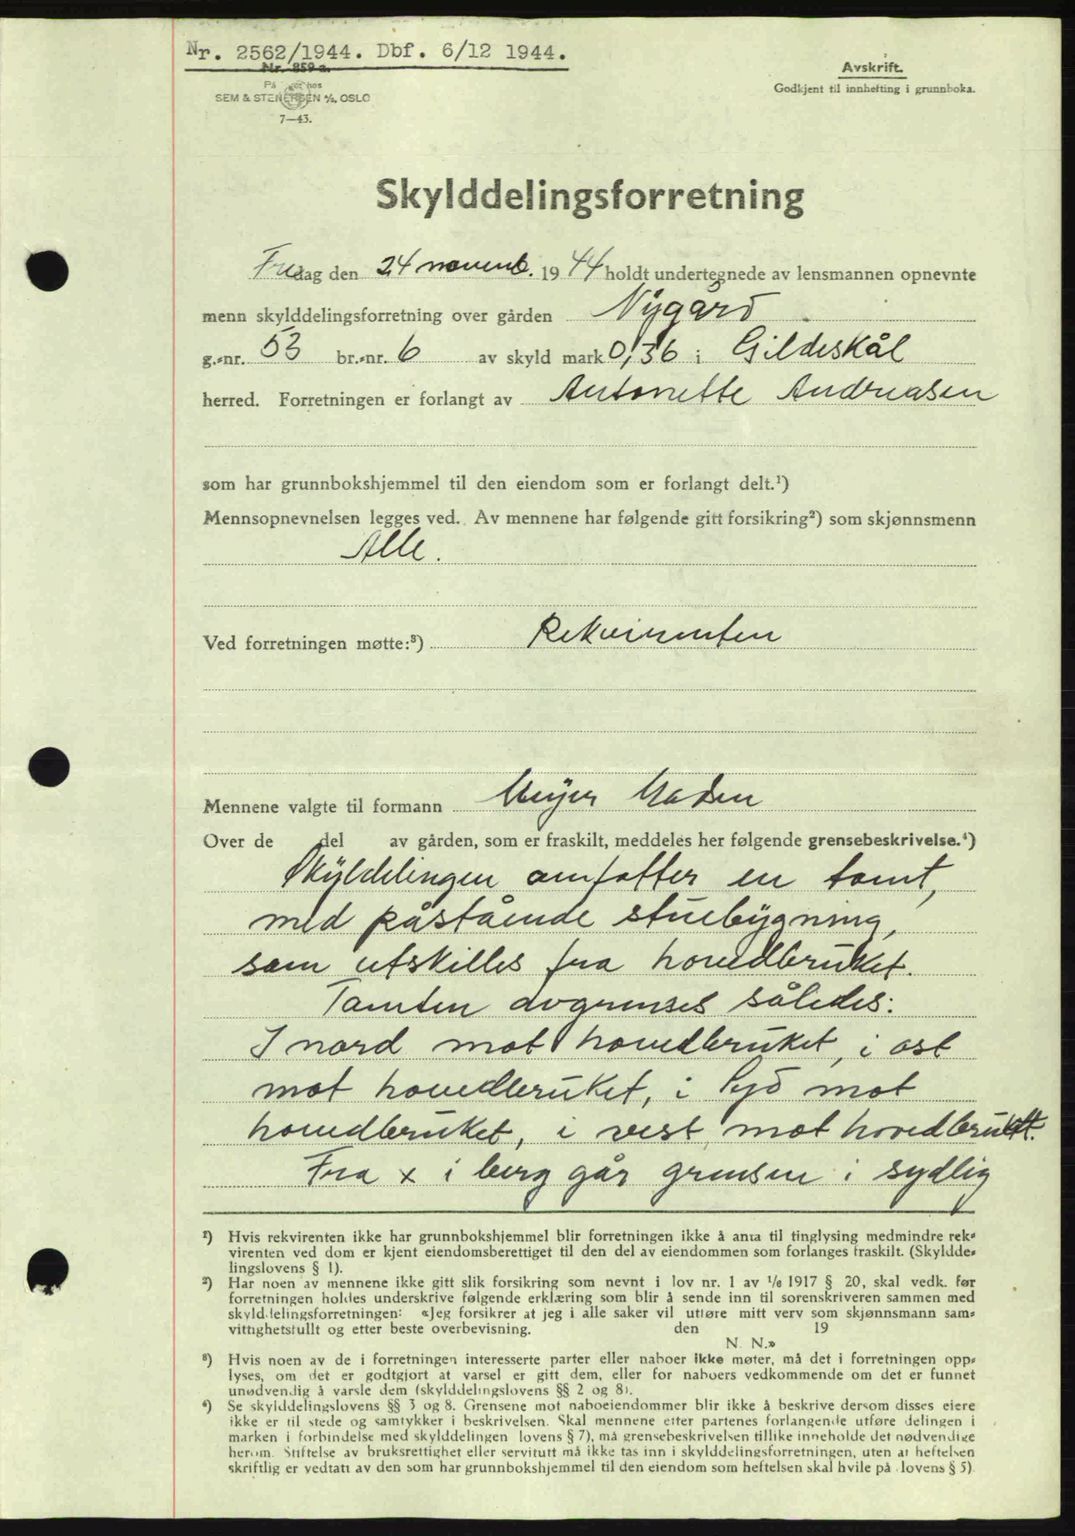 Nr. 2562/1944. Dbf. 6/12 1944.
Nr. 859 a.
På hos
SEM & STENERSEN A/S, OSLO
7—43.
Avskrift.
Godkjent til innhefting i grunnboka.
Skylddelingsforretning
Fredag den 24 novemb. 1944 holdt undertegnede av lensmannen opnevnte
menn skylddelingsforretning over gården Nygård
g.-nr. 53 br.-nr. 6 av skyld mark 0,36 i Gildeskål
herred. Forretningen er forlangt av Antonette Andreasen
som har grunnbokshjemmel til den eiendom som er forlangt delt.¹)
Mennsopnevnelsen legges ved. Av mennene har følgende gitt forsikring²) som skjønnsmenn
Alle.
Ved forretningen møtte:³) Rekvirenten
Mennene valgte til formann Meyer Madsen
Over de del av gården, som er fraskilt, meddeles her følgende grensebeskrivelse.⁴)
Skylddelingen omfatter en tomt,
med påstående stuebygning,
som utskilles fra hovedbruket.
Tomten avgrenses således:
I nord mot hovedbruket, i øst
mot hovedbruket, i Syd mot
hovedbruket, i vest mot hovedbruket.
Fra x i berg går grensen i sydlig
¹) Hvis rekvirenten ikke har grunnbokshjemmel blir forretningen ikke å anta til tinglysing medmindre rek-
virenten ved dom er kjent eiendomsberettiget til den del av eiendommen som forlanges fraskilt. (Skyldde-
lingslovens § 1).
²) Har noen av mennene ikke gitt slik forsikring som nevnt i lov nr. 1 av 1/6 1917 § 20, skal vedk. før
forretningen holdes underskrive følgende erklæring som blir å sende inn til sorenskriveren sammen med
skylddelingsforretningen: «Jeg forsikrer at jeg i alle saker vil utføre mitt verv som skjønnsmann sam-
vittighetsfullt og etter beste overbevisning. den 19
N. N.»
³) Hvis noen av de i forretningen interesserte parter eller naboer ikke møter, må det i forretningen opp-
lyses, om det er godtgjort at varsel er gitt dem, eller for naboers vedkommende om det er funnet
unødvendig å varsle dem (skylddelingslovens §§ 2 og 8).
⁴) Se skylddelingslovens §§ 3 og 8. Grensene mot naboeiendommer blir ikke å beskrive dersom disses eiere
ikke er til stede og samtykker i beskrivelsen. Skal mennene etter partenes forlangende utføre delingen i
marken i forbindelse med skylddelingen lovens § 7), må grensebeskrivelsen tillike inneholde det nødvendige
herom. Stiftelse av bruksrettighet eller servitutt må ikke tas inn i skylddelingsforretningen, uten at heftelsen
skriftlig er vedtatt av den som har grunnbokshjemmel til den eiendom som heftelsen skal hvile på lovens § 5)